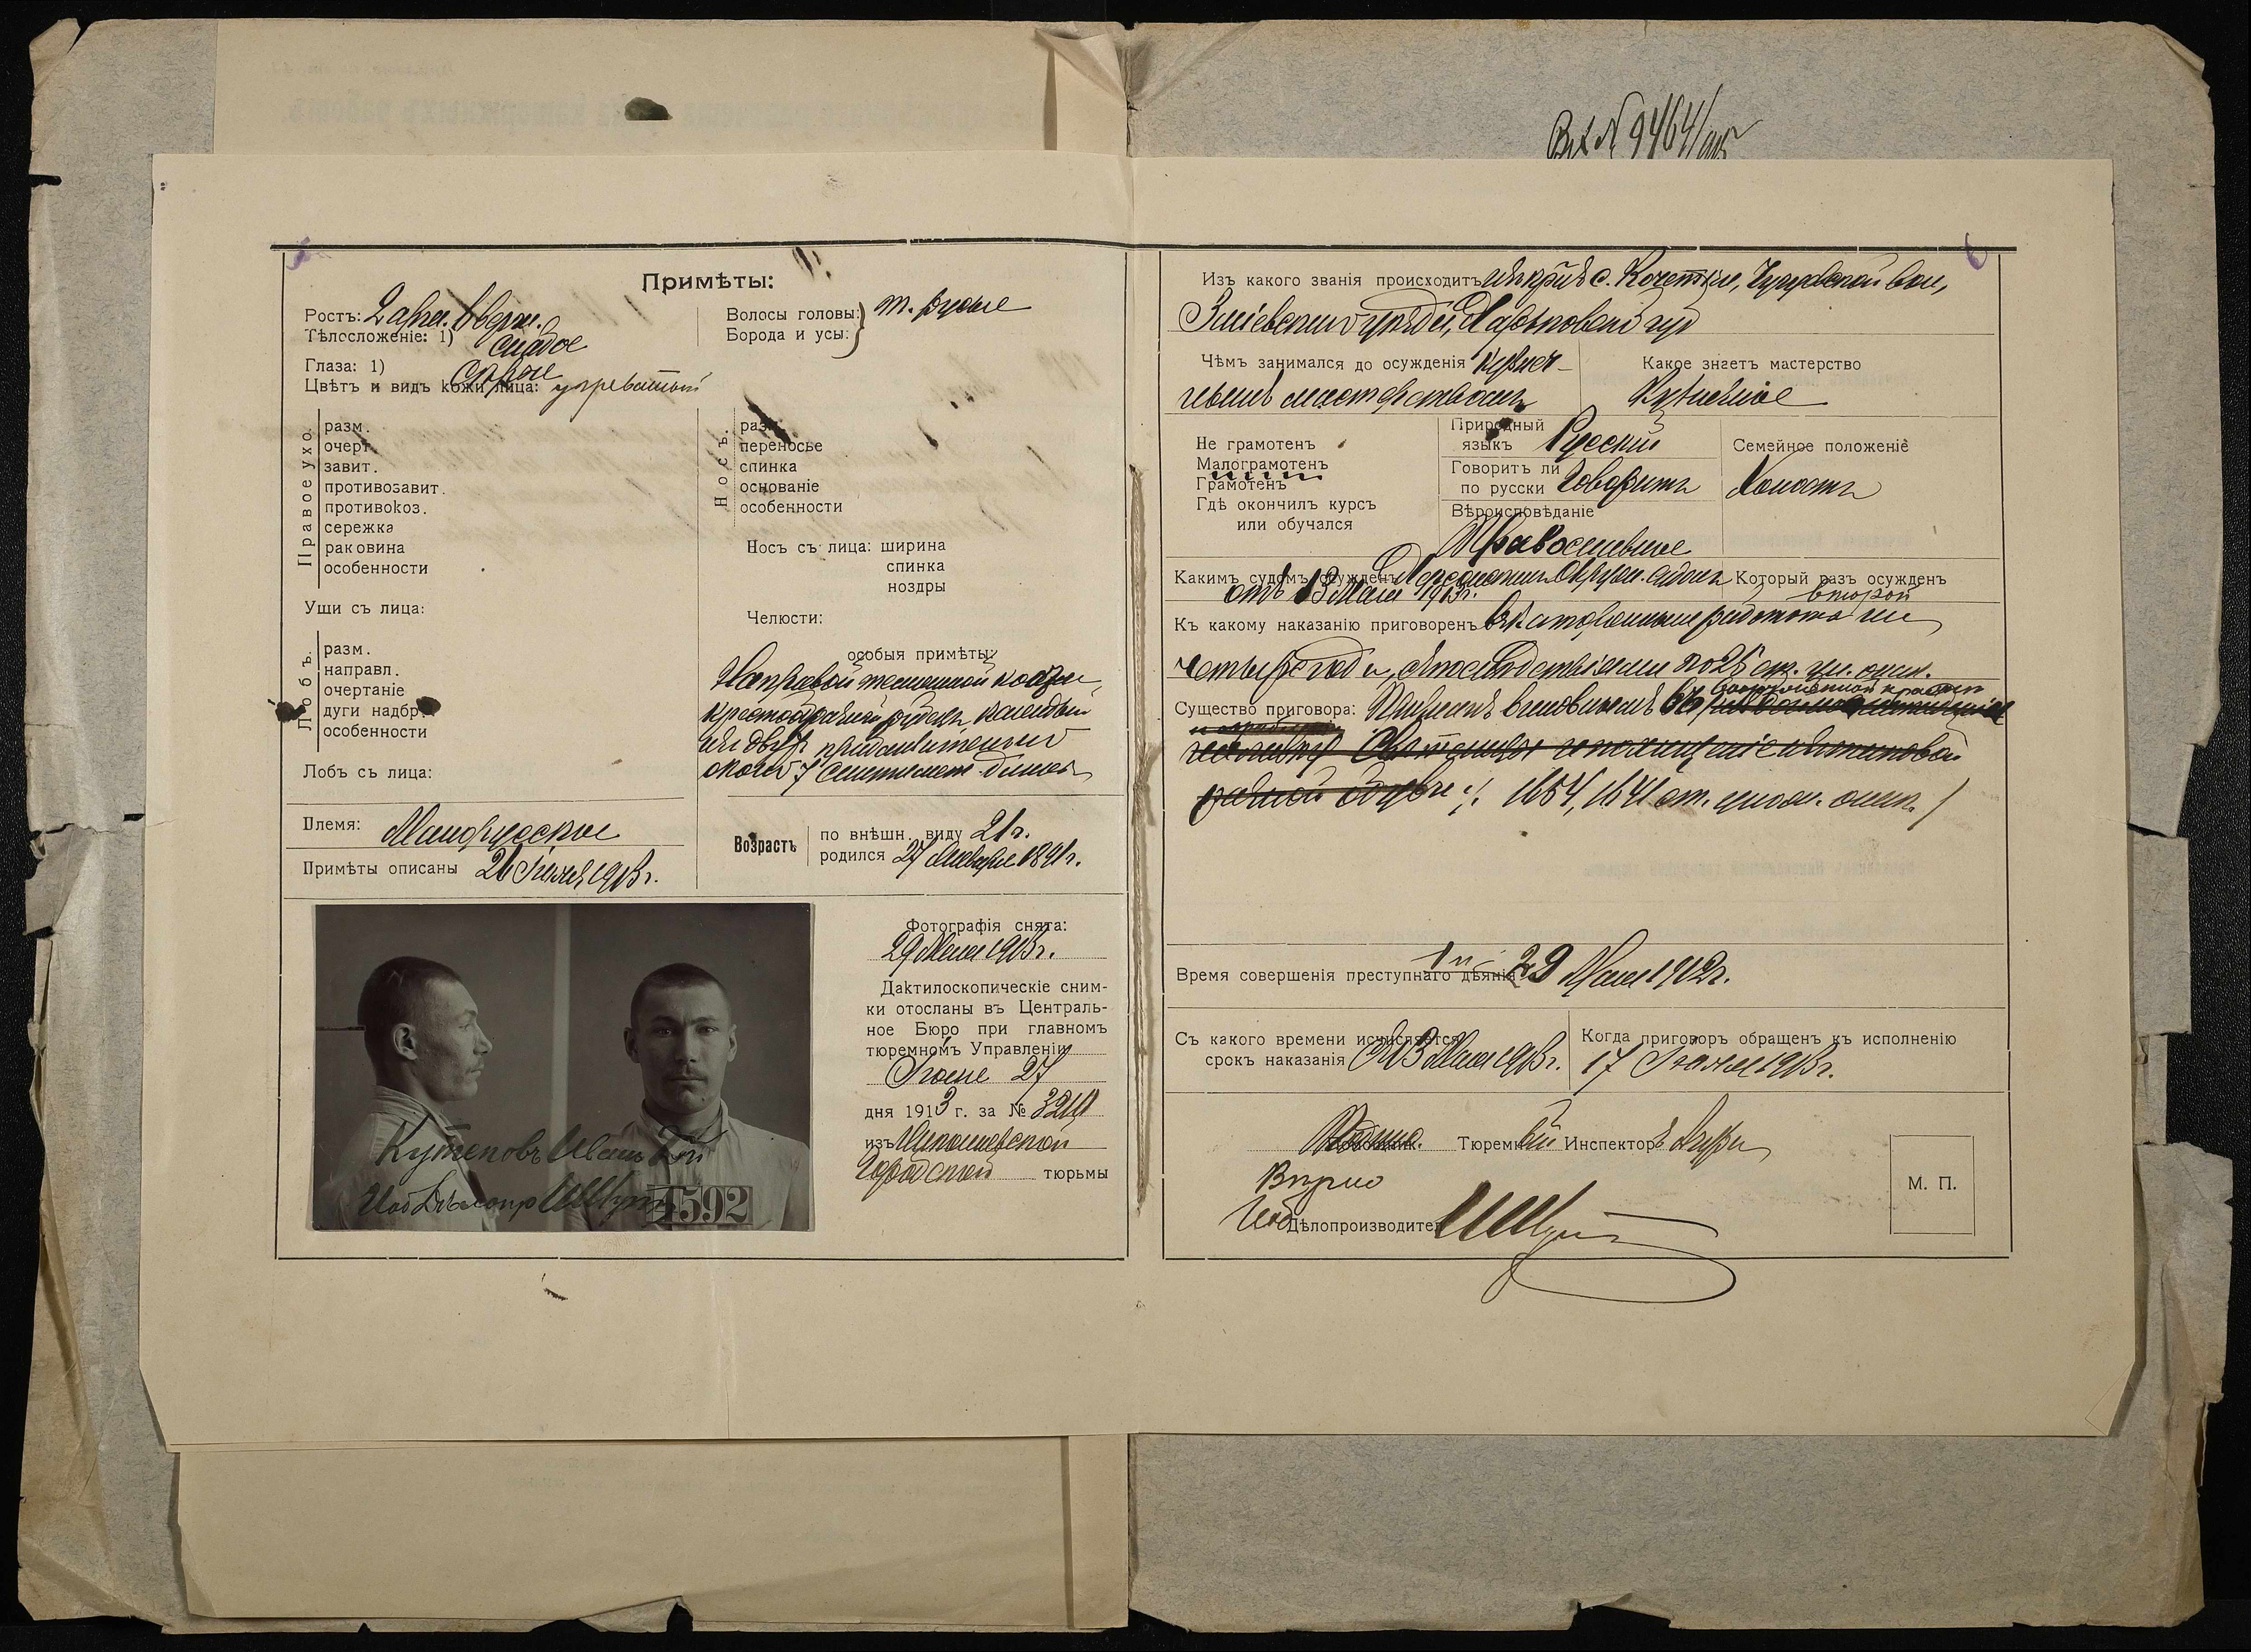 Вх № 9464/
5
6
Примѣты:
Ростъ: 2 арш. 6 верш.
Тѣлосложеніе: 1) слабое
Глаза: 1) сѣрые
Цвѣтъ и видъ кожи лица: угреватый
Волосы головы: } т. русые
Борода и усы:
Правое ухо.
разм.
очерт.
завит.
противозавит.
противокоз.
сережка
раковина
особенности
Уши съ лица:
Носъ.
разм.
переносье
спинка
основаніе
особенности
Носъ съ лица: ширина
спинка
ноздры
Челюсти:
Лобъ.
разм.
направл.
очертаніе
дуги надбр.
особенности
Лобъ съ лица:
особыя примѣты:
На правой теменной кости
крестообразный рубецъ каждый
изъ двухъ приблизительно
около 7 сантимет. длины
Племя: Малорусское
Примѣты описаны 26 Іюня 1913 г.
Возрастъ
по внѣшн. виду 21 г.
родился 27 Декабря 1891 г.
Кутеповъ Иванъ
И об Дѣлопр
1592
Фотографія снята:
29 Мая 1913 г.
Дактилоскопическіе сним-
ки отосланы въ Централь-
ное Бюро при главномъ
тюремномъ Управленіи
Іюня 27
дня 1913 г. за №
изъ Николаевской
Городской тюрьмы
Изъ какого званія происходитъ изъ крест. с. Кочетка, Чугуевской вол,
Зміевского уѣзда, Харьковской губ
Чѣмъ занимался до осужденія Кузнеч-
нымъ мастерствомъ
Какое знаетъ мастерство
Кузнечное
Не грамотенъ
Малограмотенъ
Грамотенъ
Гдѣ окончилъ курсъ
или обучался
Природный
языкъ Русскій
Говоритъ ли
по русски Говоритъ
Вѣроисповѣданіе
Православное
Семейное положеніе
Холостъ
Какимъ судомъ осужденъ Херсонскимъ Окружн. судомъ
отъ 13 Мая 1913 г.
Который разъ осужденъ
второй
Къ какому наказанію приговоренъ въ каторжныя работы на
четыре года, съ послѣдствіями по 25 ст. ул. о нак.
Существо приговора: Признанъ виновнымъ въ
вооруженной кражѣ
1654, 1641 ст. улож. о нак.
Время совершенія преступнаго дѣянія 29 Мая 1912 г.
Съ какого времени исчисляется
срокъ наказанія Съ 13 Мая 1913 г.
Когда приговоръ обращенъ къ исполненію
17 Іюня 1913 г.
Помощник. Тюремный Инспекторъ
Вприо
И об Дѣлопроизводител
М. П.